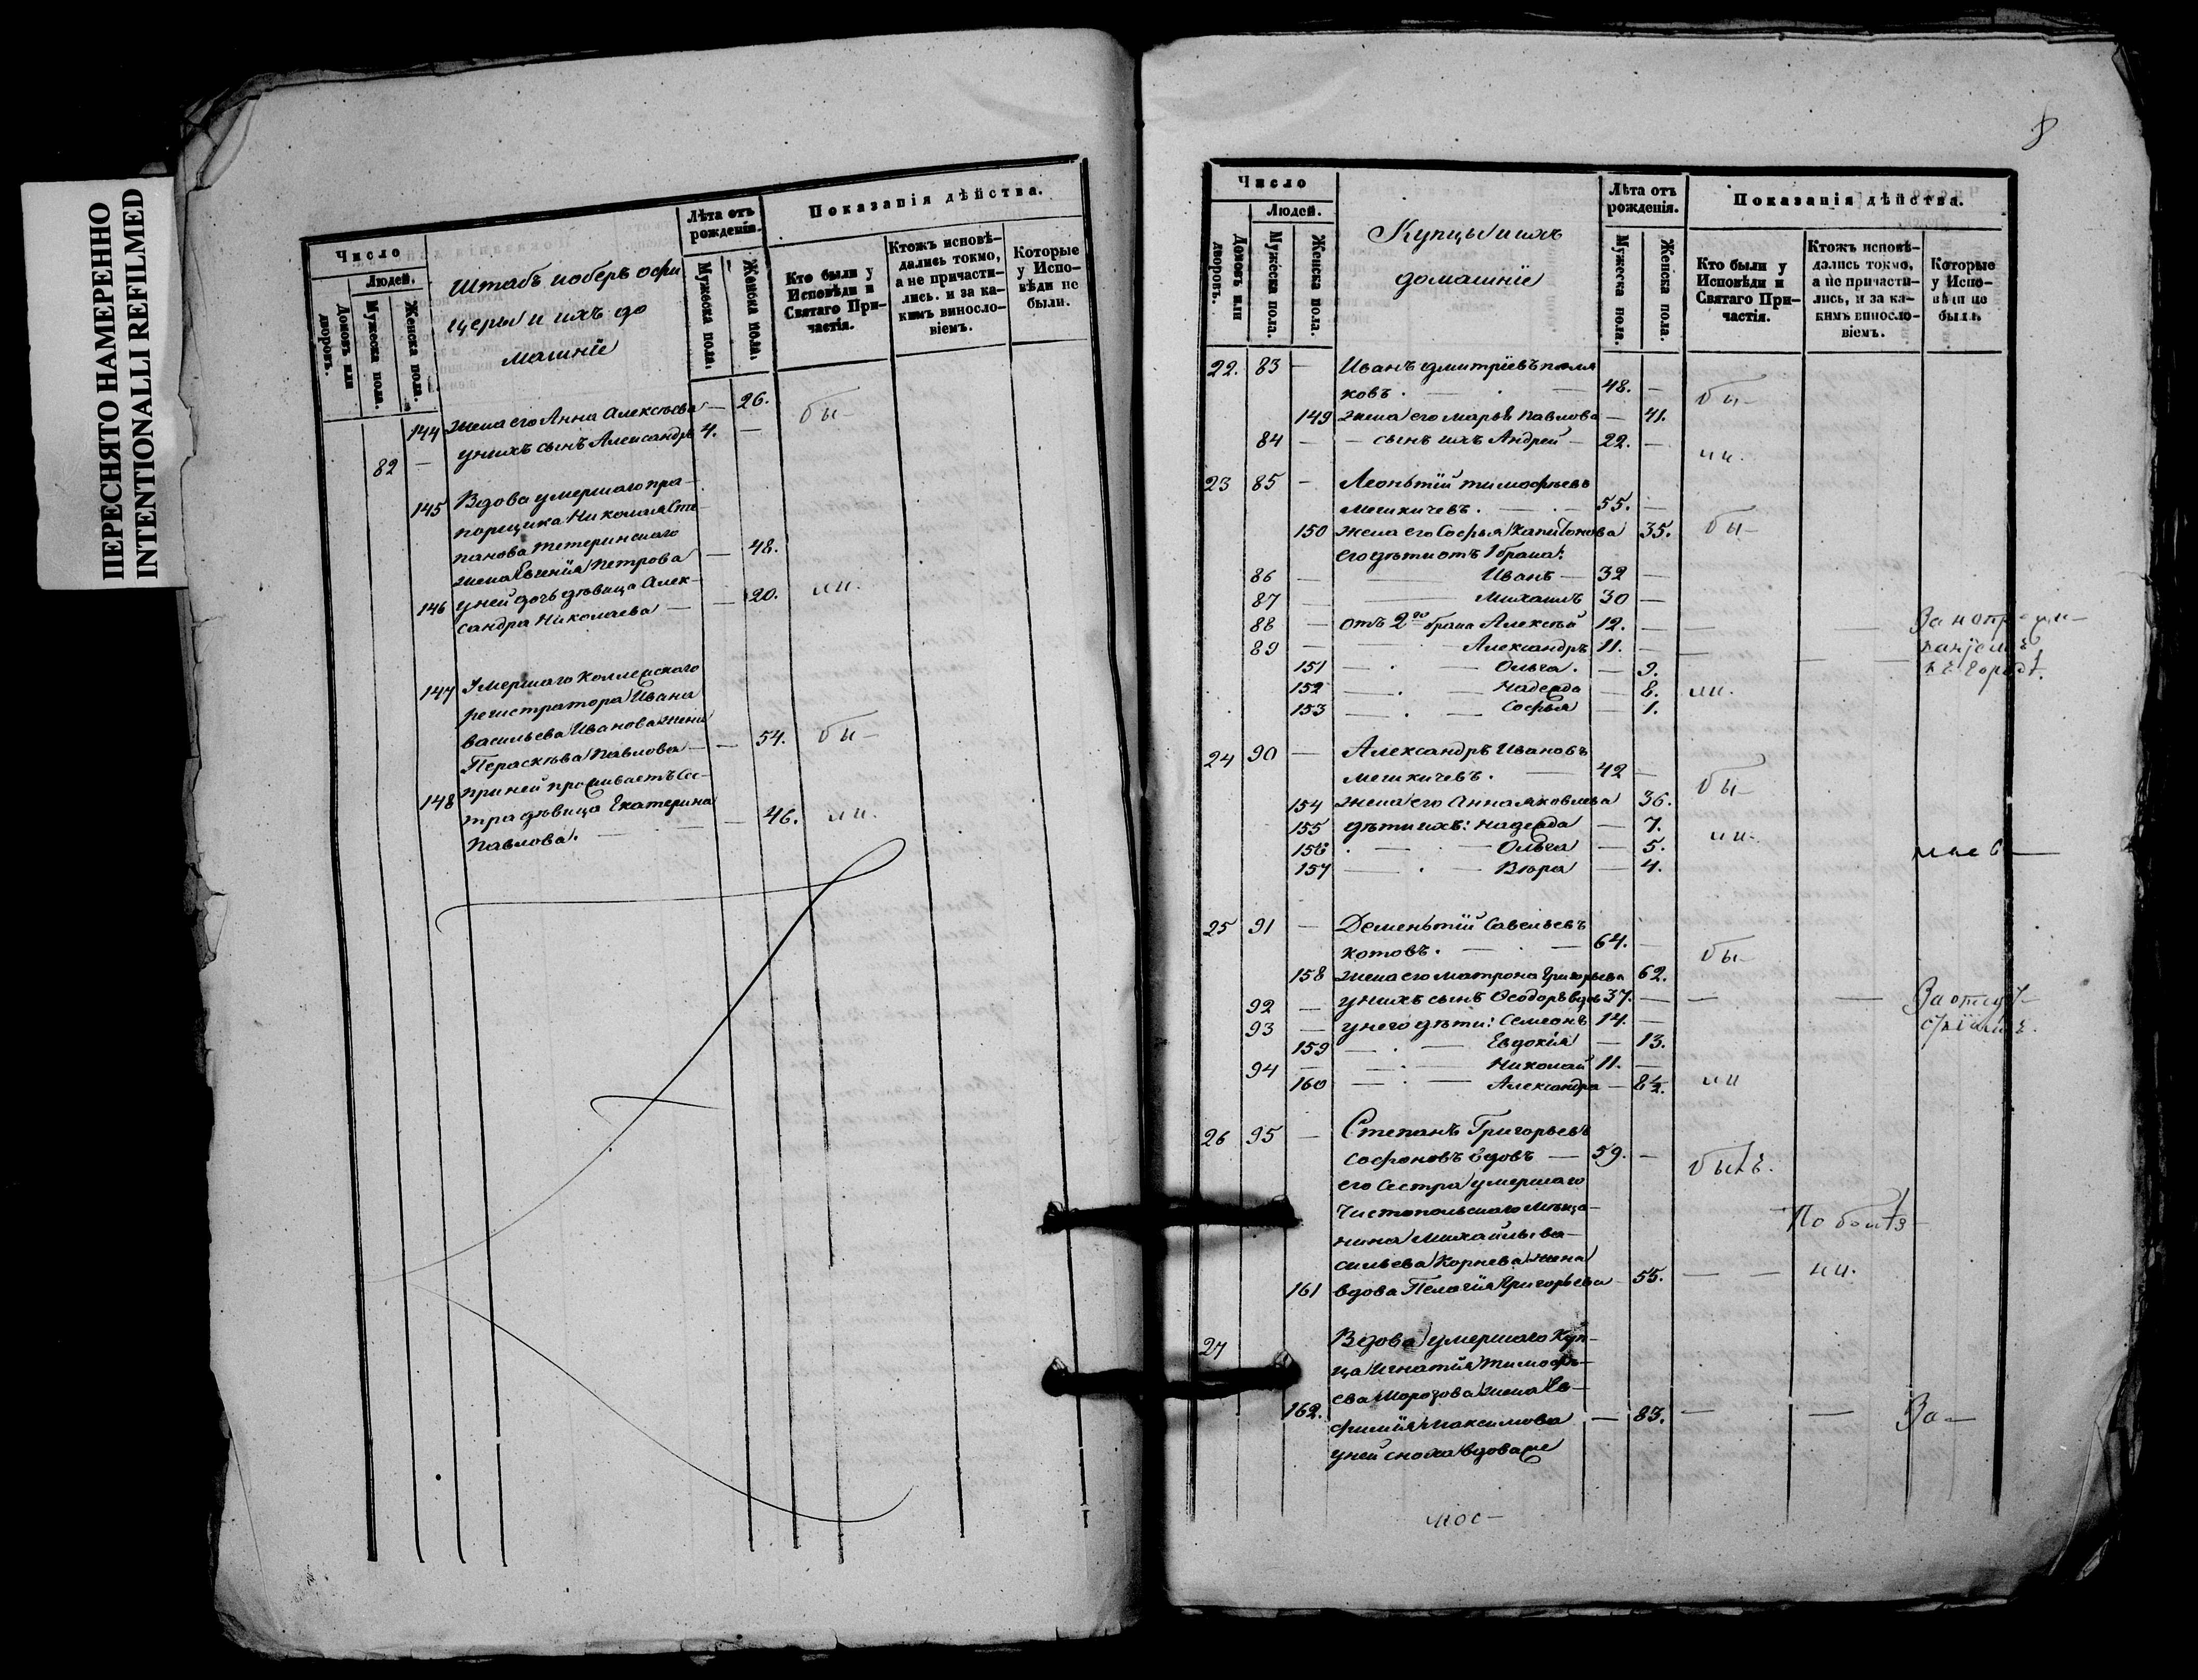 ПЕРЕСНЯТО НАМЕРЕННО
INTENTIONALLI REFILMED
Число
Людей.
Домовъ или дворовъ.
Мужеска пола.
Женска пола.
Штабъ и оберъ офи
церы и ихъ до
машніе
Лѣта отъ рожденія.
Мужеска пола.
Женска пола.
Показанія дѣйства.
Кто были у Исповѣди и Святаго Причастія.
Ктожъ исповѣдались токмо, а не причастились. и за какимъ винословіемъ.
Которые у Исповѣди не были.
144 жена его Анна Алексѣева — 26. бы—
82 — у нихъ сынъ Александръ 4. —
145 Вдова умершаго пра—
порщика Николая Сте
панова Тетеринскаго
жена Евгенія Петрова — 48.
146 у ней дочь дѣвица Алек—
сандра Николаева — — 20. ли.
147 Умершаго Коллежскаго
регистратора Ивана
Васильева Иванова жена
Параскѣва Павлова — — 54. бы—
148 при ней проживаетъ Сес—
тра дѣвица Екатерина
Павлова. — — — 46. ли.
8
Число
Людей.
Домовъ или дворовъ.
Мужеска пола.
Женска пола.
Купцы и ихъ
домашніе
Лѣта отъ рожденія.
Мужеска пола.
Женска пола.
Показанія дѣйства.
Кто были у Исповѣди и Святаго Причастія.
Ктожъ исповѣдались токмо, а не причастились, и за какимъ винословіемъ.
Которые у Исповѣди не были.
22. 83 — Иванъ Дмитріевъ Поля
ковъ. — 48. — бы—
149 жена его Марья Павлова — 41.
84 — — сынъ ихъ Андрей — 22. — ли.
23 85 — Леонтій Тимофѣевъ
Мешкичевъ. — 55. —
150 жена его Софья Капитонова 35. бы—
его дѣти отъ 1 брака:
86 — — Иванъ — 32 —
87 — — Михаилъ 30 —
88 — отъ 2го брака Алексѣй 12. — —
89 — — Александръ 11. — —
151 — Ольга. — 9.
152 — Надежда — 8. ли.
153 — Софья — 1.
къ городѣ.
24 90 — Александръ Ивановъ
Мешкичевъ. — 42 — бы—
154 жена его Анна Яковлева 36.
155 дѣти ихъ: Надежда — 7. ли.
156 — Ольга — 5.
157 — Вѣра — 4.
25 91 — Дементій Савельевъ
Котовъ. — 64. — бы—
158 жена его Матрона Григорьева 62.
92 — у нихъ сынъ Ѳеодоръ вдов 37. — — — За отсут—
93 — у него дѣти: Семеонъ 14. — ствіемъ.
159 — Евдокія — 13.
94 — — Николай 11. —
160 — Александра — 8½. ли
26 95 — Степанъ Григорьевъ
Софоновъ вдовъ — 59. — былъ.
его сестра умершаго
Чистопольскаго мѣща—
нина Михайлы Ва—
сильева Корнева жена
161 вдова Пелагія Григорьева — 55. — —
По болѣз—
ни.
27 Вдова умершаго Куп—
ца Игнатія Тимофѣ—
ева Морозова жена Ев—
162. фимія Максимова — 83. — — За—
у ней сноха вдова же